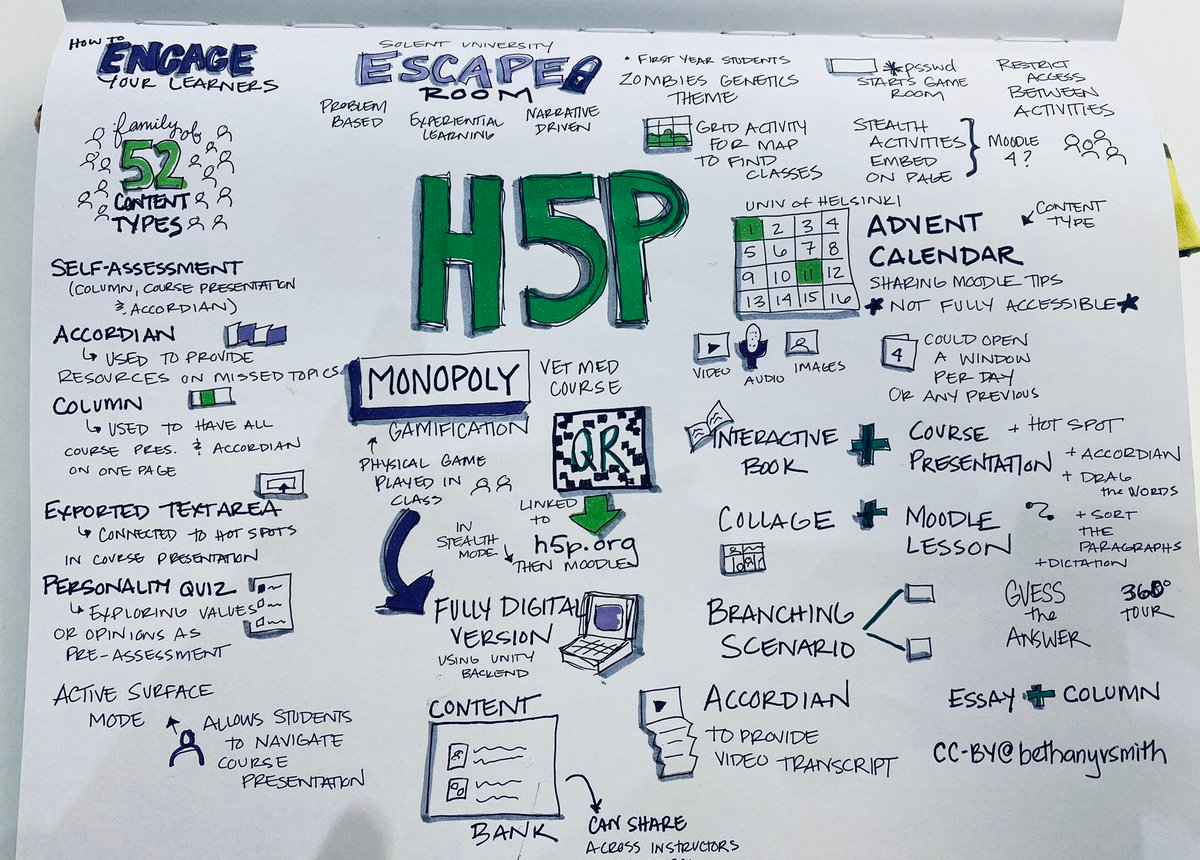 HOW TO
ENGAGE
YOUR LEARNERS
family of
52
CONTENT
TYPES
SELF-ASSESSMENT
(COLUMN, COURSE PRESENTATION
& ACCORDIAN)
ACCORDIAN
↳ USED TO PROVIDE
RESOURCES ON MISSED TOPICS
COLUMN
↳ USED TO HAVE ALL
COURSE PRES. & ACCORDIAN
ON ONE PAGE
EXPORTED TEXT AREA
↳ CONNECTED TO HOT SPOTS
IN COURSE PRESENTATION
PERSONALITY QUIZ
↳ EXPLORING VALUES
OR OPINIONS AS
PRE-ASSESSMENT
ACTIVE SURFACE
MODE
ALLOWS STUDENTS
TO NAVIGATE
COURSE
PRESENTATION
SOLENT UNIVERSITY
ESCAPE
ROOM
PROBLEM
BASED
EXPERIENTIAL
LEARNING
NARRATIVE
DRIVEN
• FIRST YEAR STUDENTS
ZOMBIES GENETICS
THEME
GRID ACTIVITY
FOR MAP
TO FIND
CLASSES
*psswd
STARTS GAME
ROOM
RESTRICT
ACCESS
BETWEEN
ACTIVITIES
STEALTH
ACTIVITIES
EMBED
ON PAGE
MOODLE
4?
H5P
UNIV OF HELSINKI
1 2 3 4
5 6 7 8
9 10 11 12
13 14 15 16
ADVENT
CALENDAR
CONTENT
TYPE
SHARING MOODLE TIPS
* NOT FULLY ACCESSIBLE *
VIDEO
AUDIO
IMAGES
4
COULD OPEN
A WINDOW
PER DAY
OR ANY PREVIOUS
MONOPOLY
GAMIFICATION
PHYSICAL GAME
PLAYED IN
CLASS
VET MED
COURSE
QR
LINKED
TO
h5p.org
IN
STEALTH
MODE
THEN MOODLE
FULLY DIGITAL
VERSION
USING UNITY
BACKEND
CONTENT
BANK
CAN SHARE
ACROSS INSTRUCTORS
INTERACTIVE
BOOK
+ COURSE
PRESENTATION
+ HOT SPOT
+ ACCORDIAN
+ DRAG
the WORDS
+ SORT
THE
PARAGRAPHS
+ DICTATION
COLLAGE + MOODLE
LESSON
BRANCHING
SCENARIO
GUESS
the
ANSWER
360°
TOUR
ACCORDIAN
TO PROVIDE
VIDEO TRANSCRIPT
ESSAY + COLUMN
CC-BY@bethanyvsmith